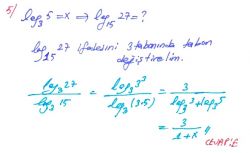 5/ log₃ 5 = x ⇒ log₁₅ 27 = ?
log₁₅ 27 ifadesini 3 tabanında taban
değiştirelim.
log₃ 27 / log₃ 15 = log₃ 3³ / log₃ (3.5) = 3 / log₃ 3 + log₃ 5
= 3 / 1 + x //
CEVAP: E